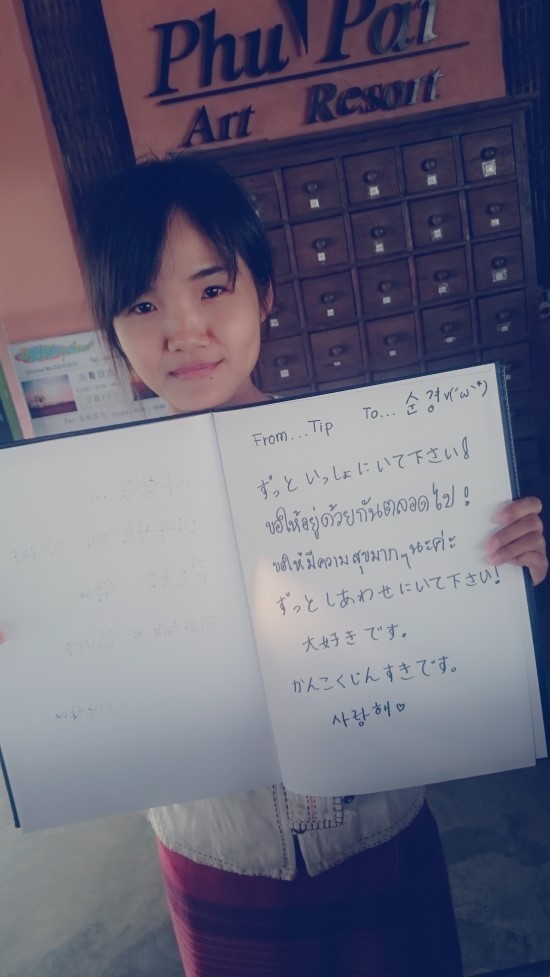 Phu Pai
Art Resort
From... Tip To... 순경 v(´ω`*)
ずっと いっしょ に いて 下さい!
ขอให้อยู่ด้วยกันตลอดไป!
ขอให้มีความสุขมากๆนะค่ะ
ずっと しあわせ に いて 下さい!
大好き です。
かんこくじん すき です。
사랑해♡